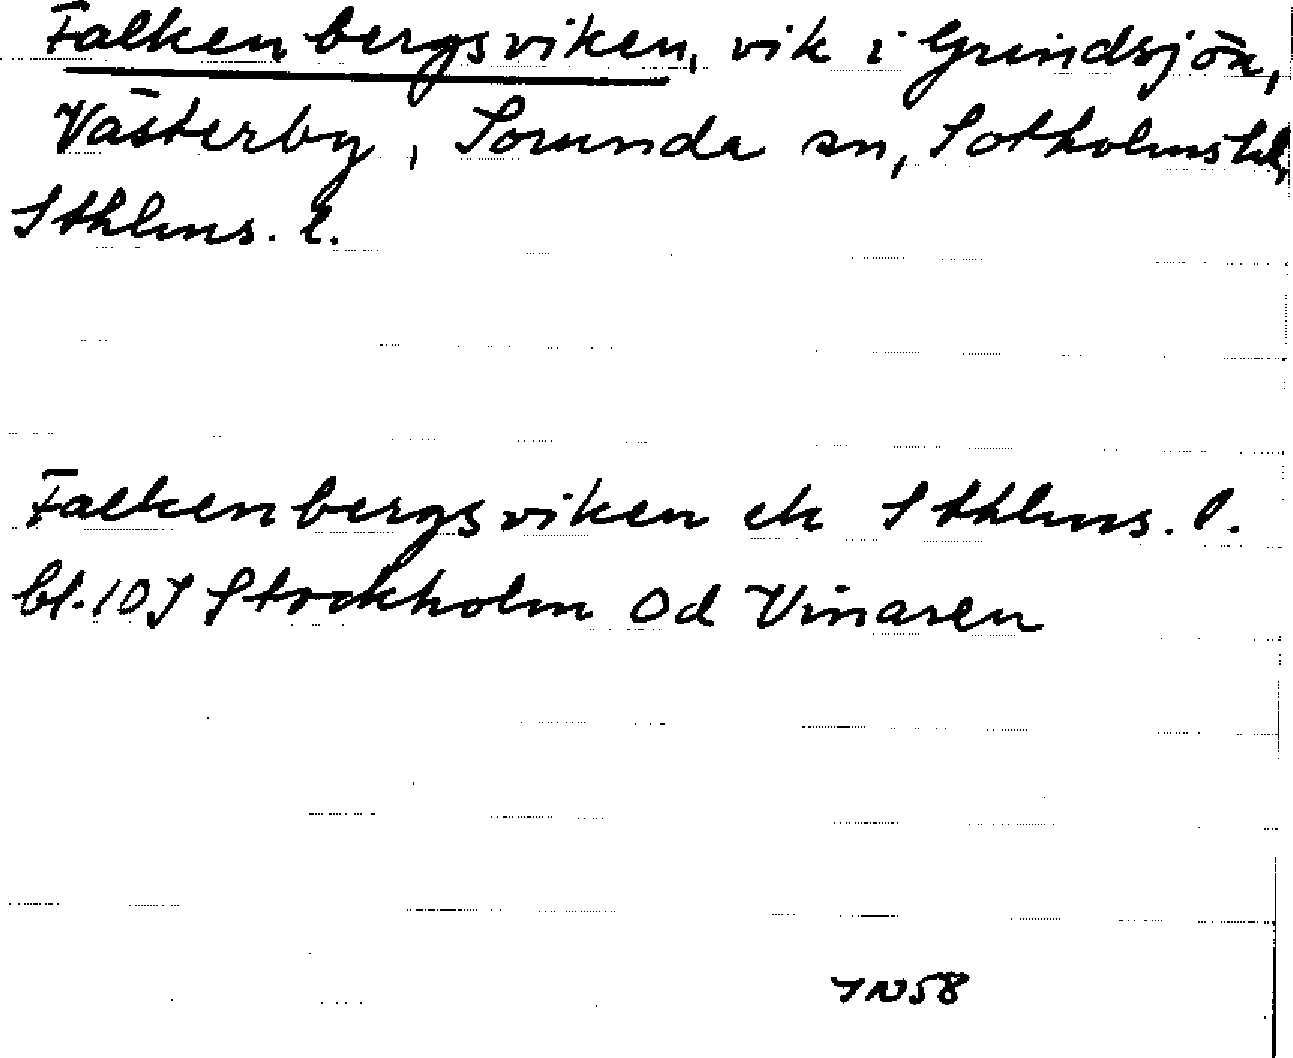 Falkenbergsviken, vik i Grindsjön,
Västerby, Sorunda sn, Sotholms hd,
Sthlms. l.
Falkenbergsviken ek Sthlms. l.
bl. 10I Stockholm Od Vinaren
IN58